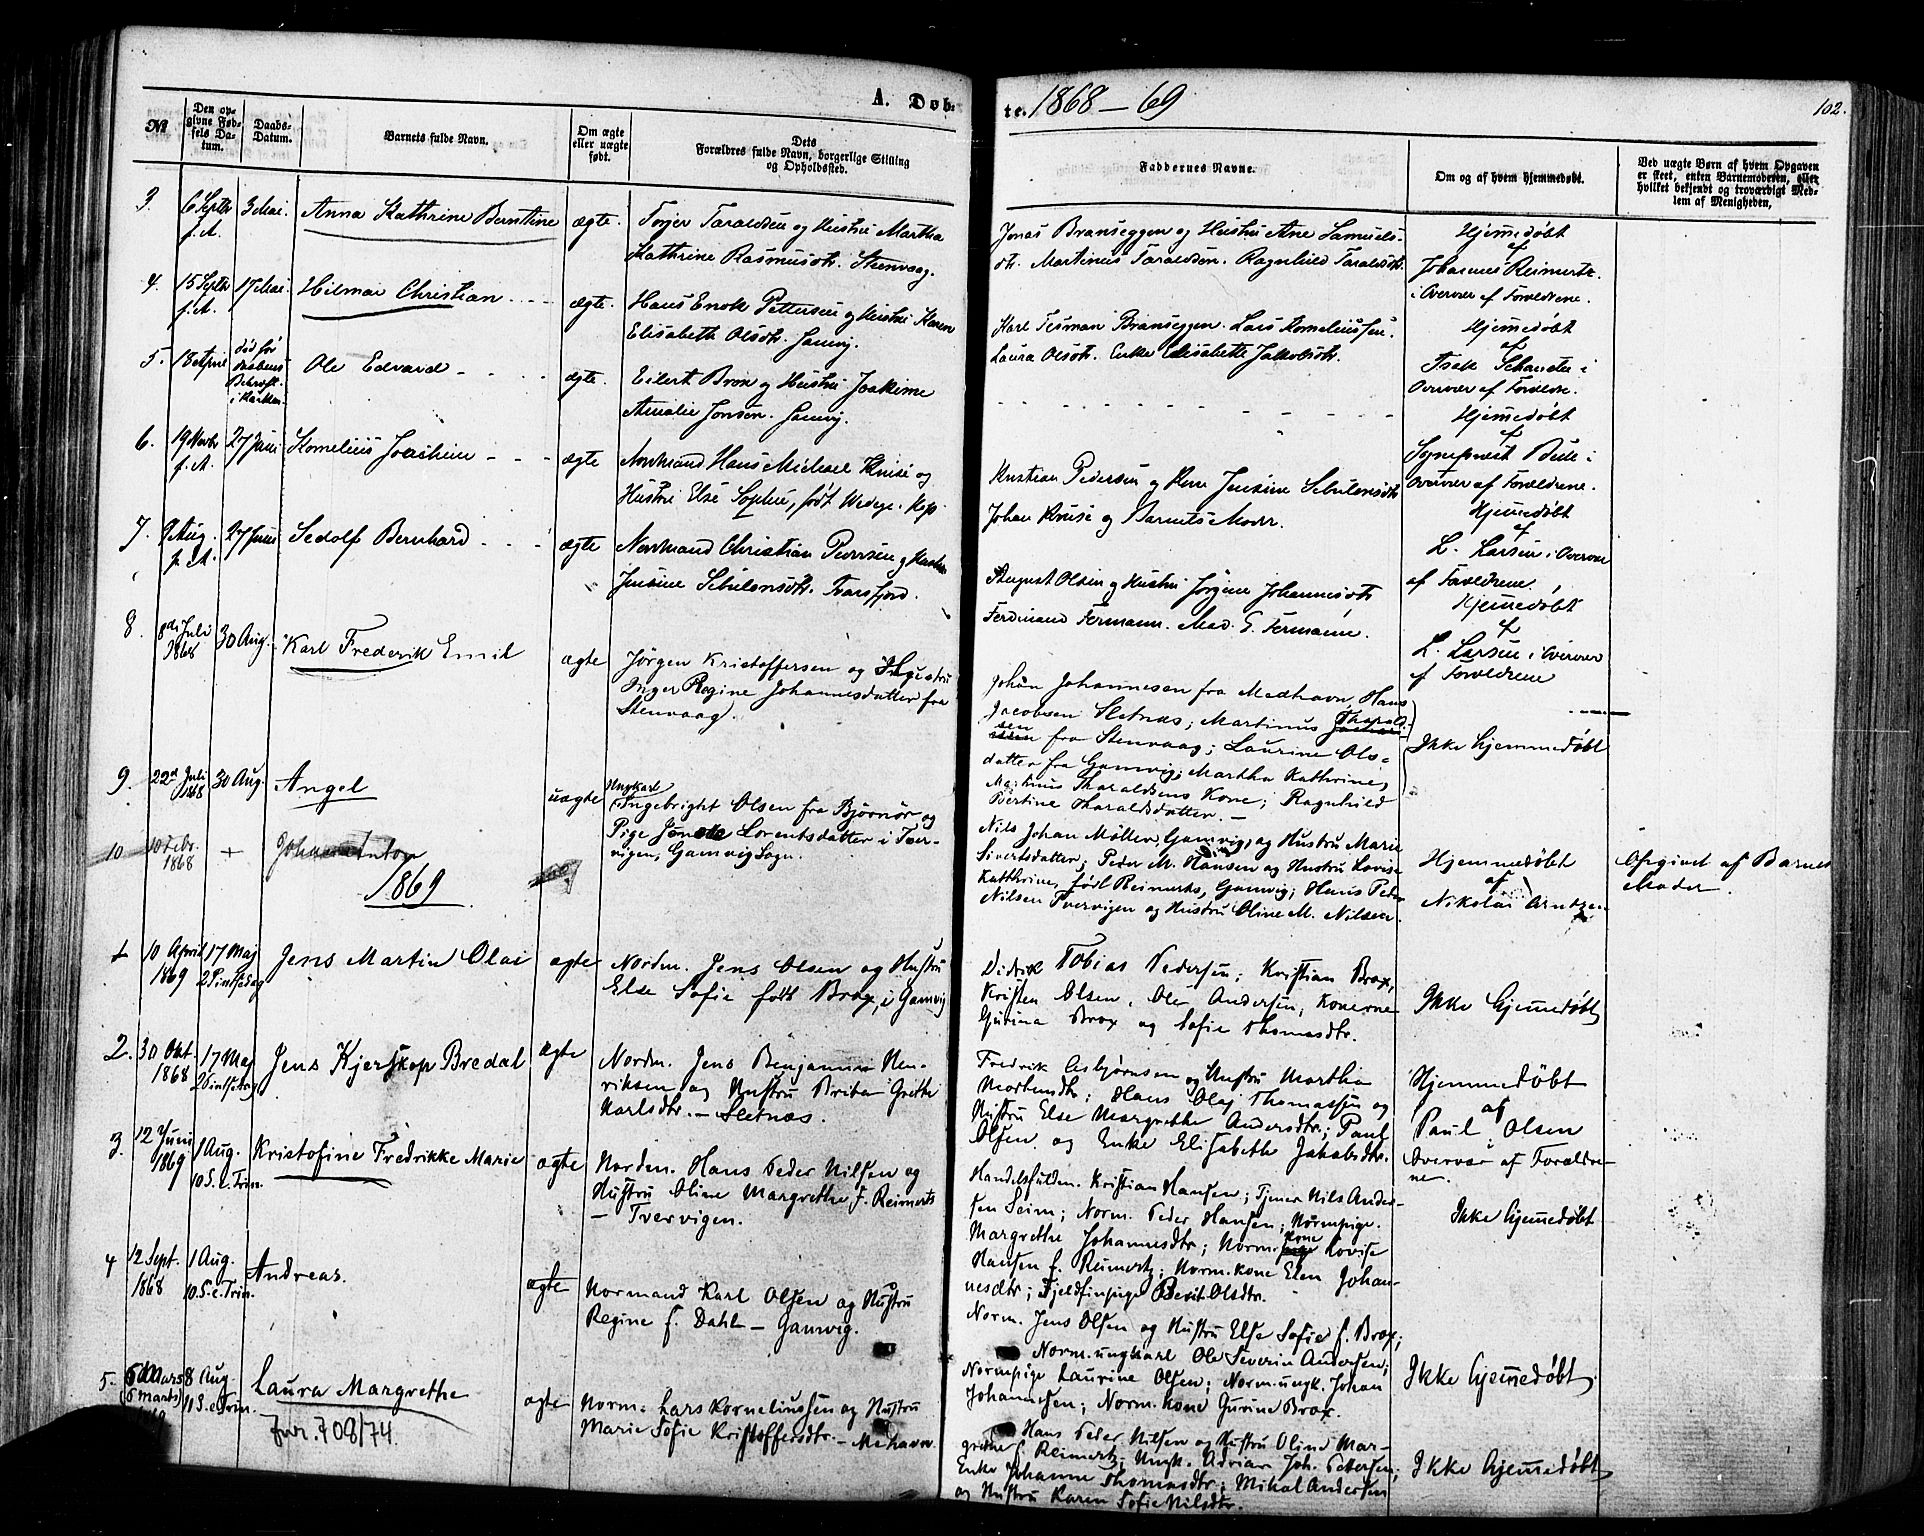 A. Døb-
te. 1868-69
102.
No
Den op-
givne Fød-
sels Da-
tum.
Daabs-
Datum.
Barnets fulde Navn.
Om ægte
eller uægte
født.
Dets
Forældres fulde Navn, borgerlige Stilling
og Opholdssted.
Faddernes Navne.
Om og af hvem hjemmedøbt.
Ved uægte Børn af hvem Opgaven
er skeet, enten Barnemoderen, eller
hvilket bekjendt og troværdigt Med-
lem af Menigheden.
3. 6 Septbr 3 Mai. Anna Kathrine Berntine ægte. Torjer Taraldsen og Hustru Martha
f. A. Kathrine Rasmusdtr. Steenvaag.
Jonas Branseggen og Hustru Ane Samuels-
dtr. Martinus Taraldsen. Ragnhild Taraldsdtr.
Hjemmedøbt
af
Johannes Reimertz.
i Overvær af Forældrene.
4. 15 Septbr 17 Mai Hilmar Christian ægte. Hans Enok Pettersen og Hustru Karen
f. A. Elisabeth Olsdtr. Gamvig.
Karl Tesman Branseggen. Lars Kornelius sen.
Laura Olsdtr. Enke Elisabeth Jakobsdtr.
Hjemmedøbt
af
Isak Schanche i
Overvær af Forældre.
5. 18 April død før
Daabens
Bekræft.
i Kirken. Ole Edvard ægte. Eilert Brox og Hustru Joakime
Amalie Jonsen. Gamvig.
Hjemmedøbt
af
Sognepræst Bull i
Overvær af Forældrene.
6. 19 Novbr 27 Juni Kornelius Joachim ægte Nordmand Hans Michael Kruse og
f. A. Hustru Else Sophie, født Wedege. Kjp.
Kristian Pedersen og Kone Jensine Schulonsdtr
Johan Kruse og Barnets Moder.
Hjemmedøbt
af
L. Larsen i Overvær
af Forældrene
7. 9 Aug. 27 Juni Sedolf Bernhard ægte Nordmand Christian Pedersen og Hustru
f. A. Jensine Schulonsdtr. Tvarsfjord.
August Olsen og Hustru Jørgine Johannesdtr
Ferdinand Fermann. Mad. G. Fermann.
Hjemmedøbt
af
L. Larsen i Overvær
af Forældrene
8. 8de Juli 30 Aug. Karl Frederik Emil ægte Jørgen Kristoffersen og Hustru
1868 Inger Regine Johannesdatter fra
Stenvaag.
Johan Johannesen fra Medhavn, Hans
Jacobsen Sletnæs; Martinus Tharald-
sen fra Stenvaag; Laurine Ols-
datter fra Gamvig; Martha Kathrine,
Martinus Tharaldsens Kone; Ragnhild
Bertine Tharaldsdatter. —
Ikke hjemmedøbt
9. 22d Juli 30 Aug. Angel uægte Ungkarl
1868 Ingebright Olsen fra Bjørnør og
Pige Jonette Lorentsdatter i Tver-
vigen, Gamvig Sogn.
Nils Johan Möller, Gamvig, og Hustru Marie
Sivertsdatter; Peder M. Hansen og Hustru Lovise
Kathrine, født Reimerts, Gamvig; Hans Peder
Nilsen Tvervigen og Hustru Oline M. Nilsen.
Hjemmedøbt
af
Nikolai Arntzen
Opgivet af Barnets
Moder.
10 10 Febr. + Johan Anton
1868
1869
1 10 April 17 Maj Jens Martin Olai ægte Nordm. Jens Olsen og Hustru
1869 2 Pintsedag Else Sofie født Brox, i Gamvig
Didrik Tobias Pedersen; Kristian Brox,
Kristen Olsen, Ole Andersen, Konerne
Gurina Brox og Sofie Thomasdtr.
Ikke hjemmedøbt
2. 30 Okt 17 Maj Jens Kjerskop Bredal ægte Nordm. Jens Benjamin Hen-
1868 2 Pintsedag riksen og Hustru Brita Grethe
Karlsdtr. — Sletnæs.
Fredrik Asbjørnsen og Hustru Martha
Mortensdtr; Hans Olaj Thomassen og
Hustru Else Margrethe Andersdtr.; Paul
Olsen og Enke Elisabeth Jakobsdtr.
Hjemmedøbt
af
Paul Olsen i
Overvær af Forældre-
ne.
3. 12 Juni 1 Aug. Kristofine Fredrikke Marie ægte Nordm. Hans Peder Nilsen og
1869 10 S. e. Trin. Hustru Oline Margrethe f. Reimerts
— Tvervigen.
Handelsfuldm. Kristian Hansen; Tjener Nils Ander-
sen Seim; Norm. Peder Hansen; Normpige
Margrethe Johannesdtr; Norm. kone Lovise
Hansen f. Reimertz; Norm. kone Elen Johan-
nesdtr; Fjeldfinpige Berit Olsdtr.
Ikke hjemmedøbt
4 12 Sept. 1 Aug. Andreas. ægte Normand Karl Olsen og Hustru
1868 10. S. e. Trin. Regine f. Dahl — Gamvig.
Norm. Jens Olsen og Hustru Else Sofie f. Brox;
Norm. ungkarl Ole Severin Andersen;
Normpige Laurine Olsen; Norm. ungk. Johan
Johannesen; Norm. kone Gurine Brox.
Ikke hjemmedøbt
5. 6 Mars 8 Aug. Laura Margrethe ægte Norm. Lars Korneliussen og Hustru
(6 marts) 11 S. e. Trin. Marie Sofie Kristoffersdtr. — Mehavn
Jnr. 708/74.
Hans Peder Nilsen og Hustru Oline Mar-
grethe f. Reimertz; Ungk. Adrian Joh. Pettersen;
Enke Johanne Thomasdtr; Mikal Andersen
og Hustru Karen Sofie Nilsdtr.
Ikke hjemmedøbt